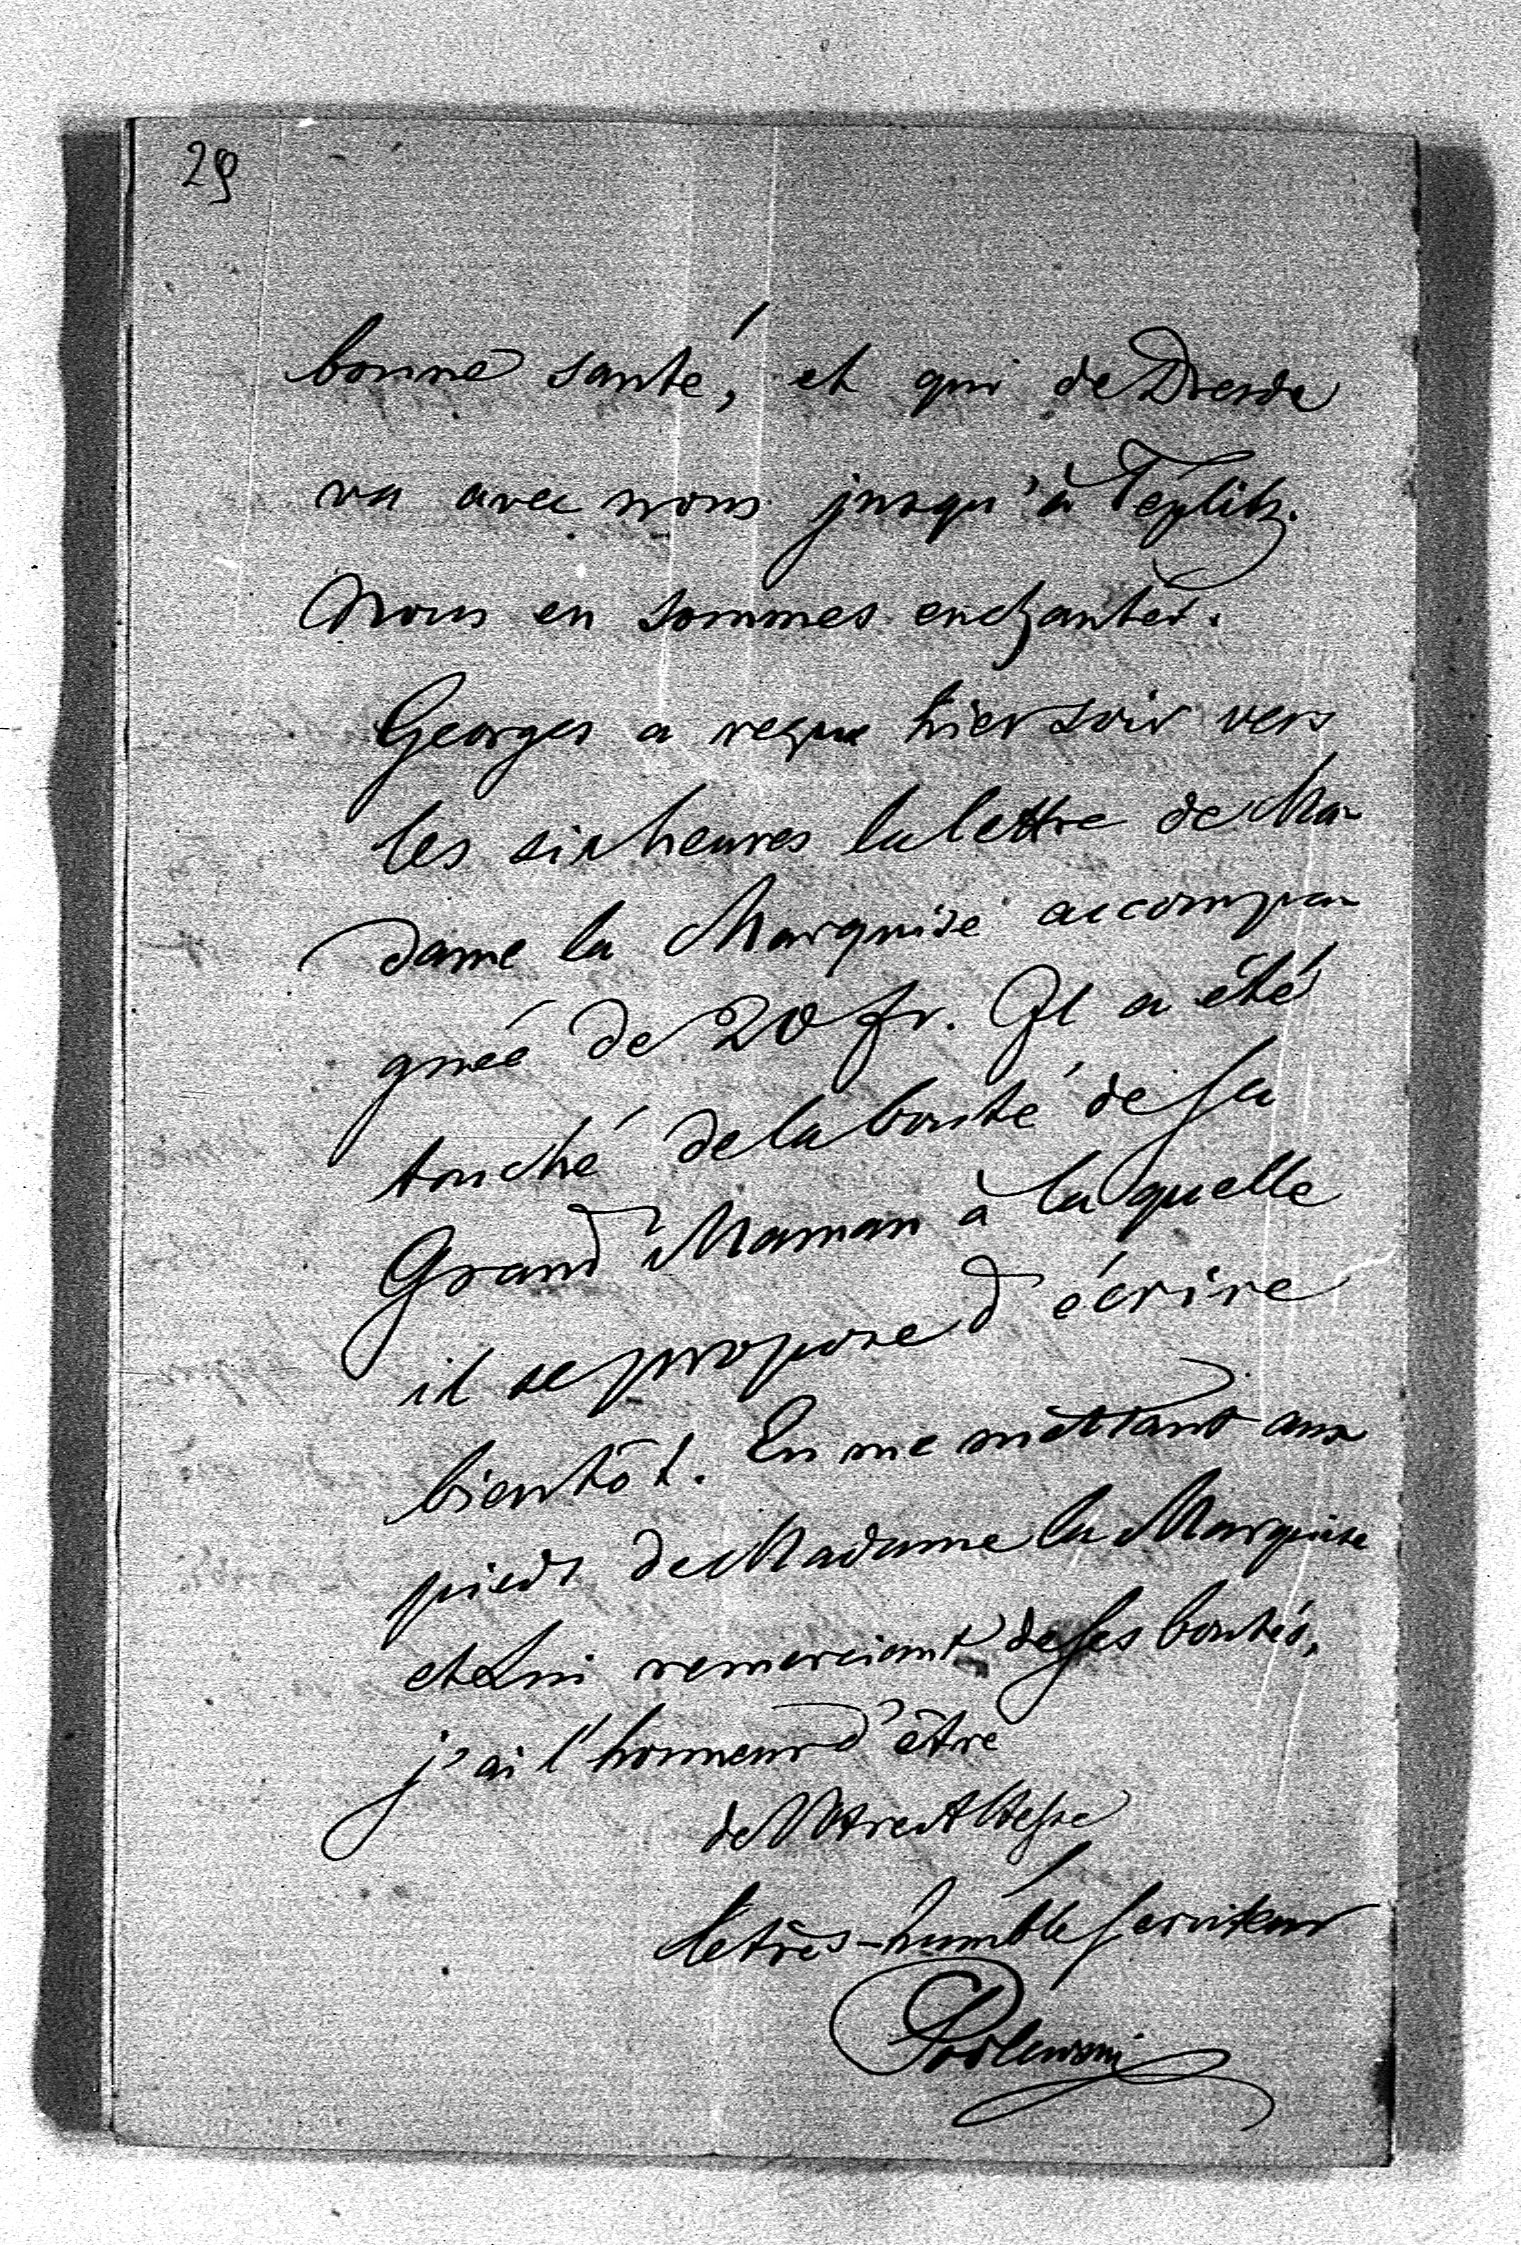 29
bonne santé, et qui de Dresde
va avec nous jusqu'à Teplitz.
Nous en sommes enchantés.
Georges a reçue hier soir vers
les six heures la lettre de Ma-
dame la Marquise accompa-
gnée de 20 fr. Il a été
touché de la bonté de sa
Grand Maman à la quelle
il se propose d'écrire
bientôt. En me mettant aux
pieds de Madame la Marquise
et Lui remerciant de ses bontés,
j'ai l'honneur d'être
de Votre Altesse
le très-humble serviteur